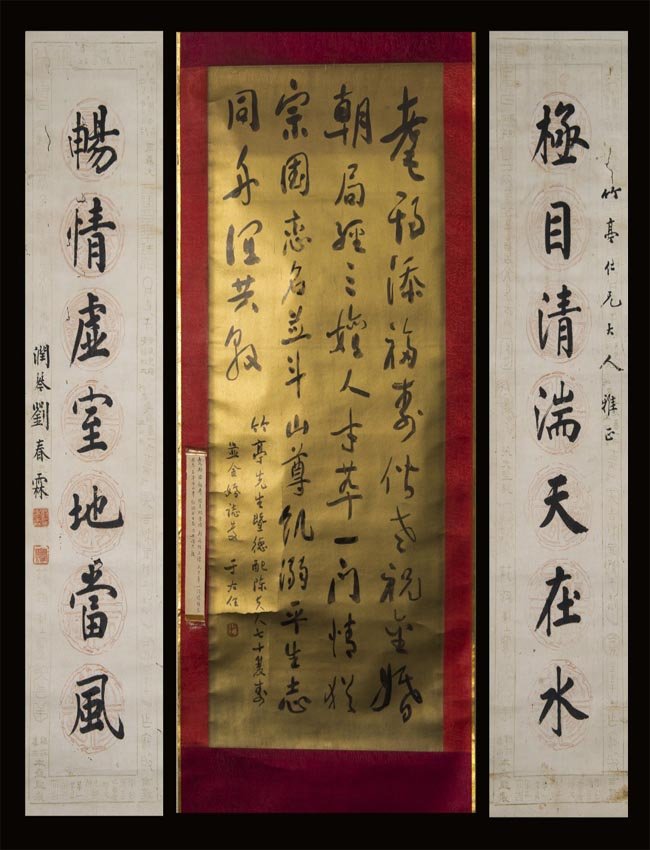 竹亭仁兄大人雅正
極目清湍天在水
耄添福壽偕老祝金婚
朝局經三嬗人才萃一門情猶
宗國戀名並斗山尊飢溺平生志
同舟誼共敦
竹亭先生暨德配陳夫人七十雙壽
並金婚誌慶 于右任
暢情虛室地當風
潤琴劉春霖